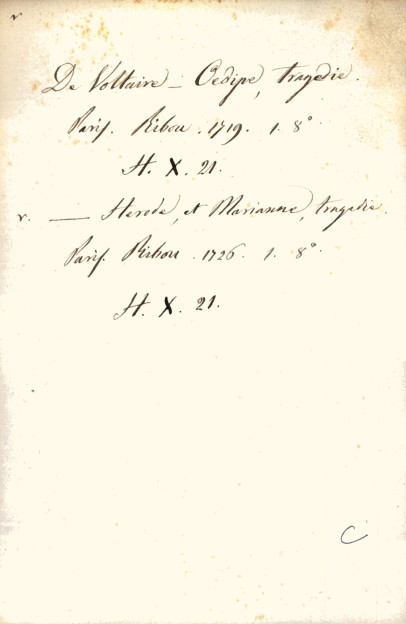 r
De Voltaire – Oedipe, tragedie.
Paris. Ribou. 1719. 1. 8°
H. X. 21.
r. — Herode, et Marianne, tragedie.
Paris. Ribou. 1726. 1. 8°.
H. X. 21.
C